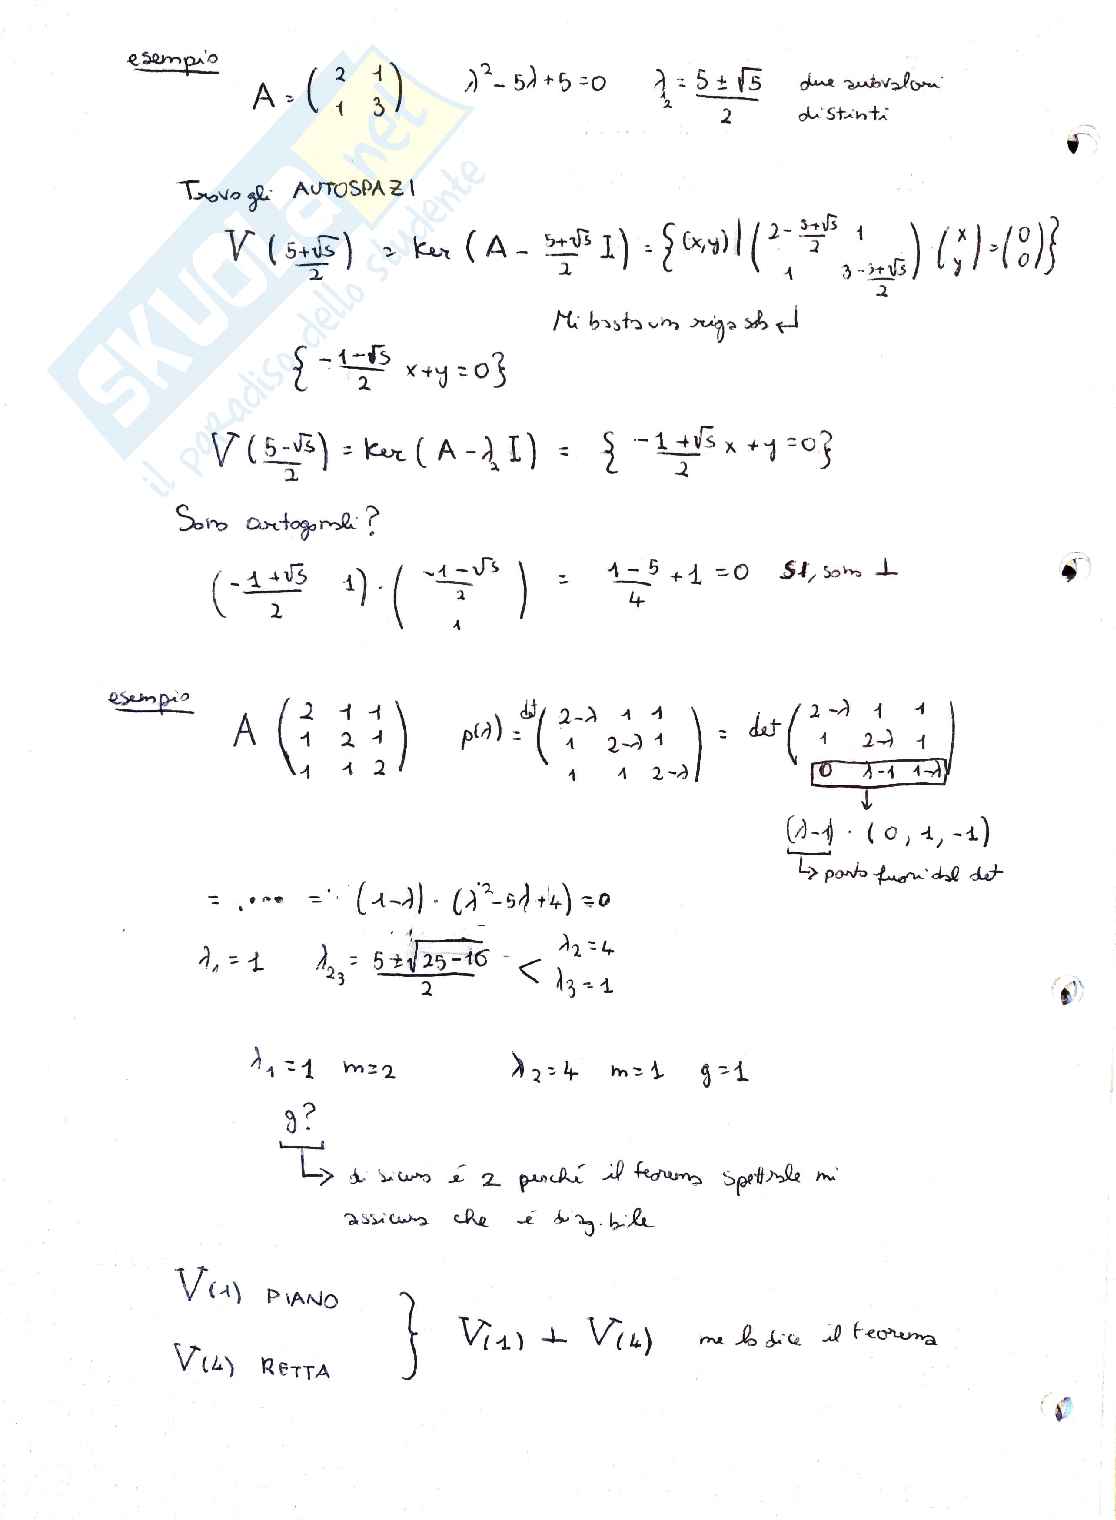 esempio
A = ( 2 1 / 1 3 )   λ² - 5λ + 5 = 0   λ½ = (5 ± √5)/2   due autovalori distinti
Trovo gli AUTOSPAZI
V((5+√5)/2) = Ker (A - (5+√5)/2 I) = {(x,y) | ( 2 - (5+√5)/2  1 / 1  3 - (5+√5)/2 ) · ( x / y ) = ( 0 / 0 )}
Mi basta una riga sola ↵
{ (-1-√5)/2 x + y = 0 }
V((5-√5)/2) = Ker (A - λ₂ I) = { (-1+√5)/2 x + y = 0 }
Sono ortogonali?
( (-1+√5)/2  1 ) · ( (-1-√5)/2 / 1 ) = (1-5)/4 + 1 = 0   SI, sono ⊥
esempio
A ( 2 1 1 / 1 2 1 / 1 1 2 )   p(λ) = det ( 2-λ 1 1 / 1 2-λ 1 / 1 1 2-λ ) = det ( 2-λ 1 1 / 1 2-λ 1 / 0 λ-1 1-λ )
(λ-1) · (0, 1, -1)
↳ porto fuori dal det
= .... = (1-λ) · (λ² - 5λ + 4) = 0
λ₁ = 1   λ₂₃ = (5 ± √(25-16))/2 < λ₂ = 4   λ₃ = 1
λ₁ = 1   m = 2   λ₂ = 4   m = 1   g = 1
g?
↳ di sicuro é 2 perché il teorema spettrale mi
assicura che é diag.bile
V(1) PIANO
V(4) RETTA   } V(1) ⊥ V(4)   me lo dice il teorema
SKUOLA.net
il paradiso dello studente